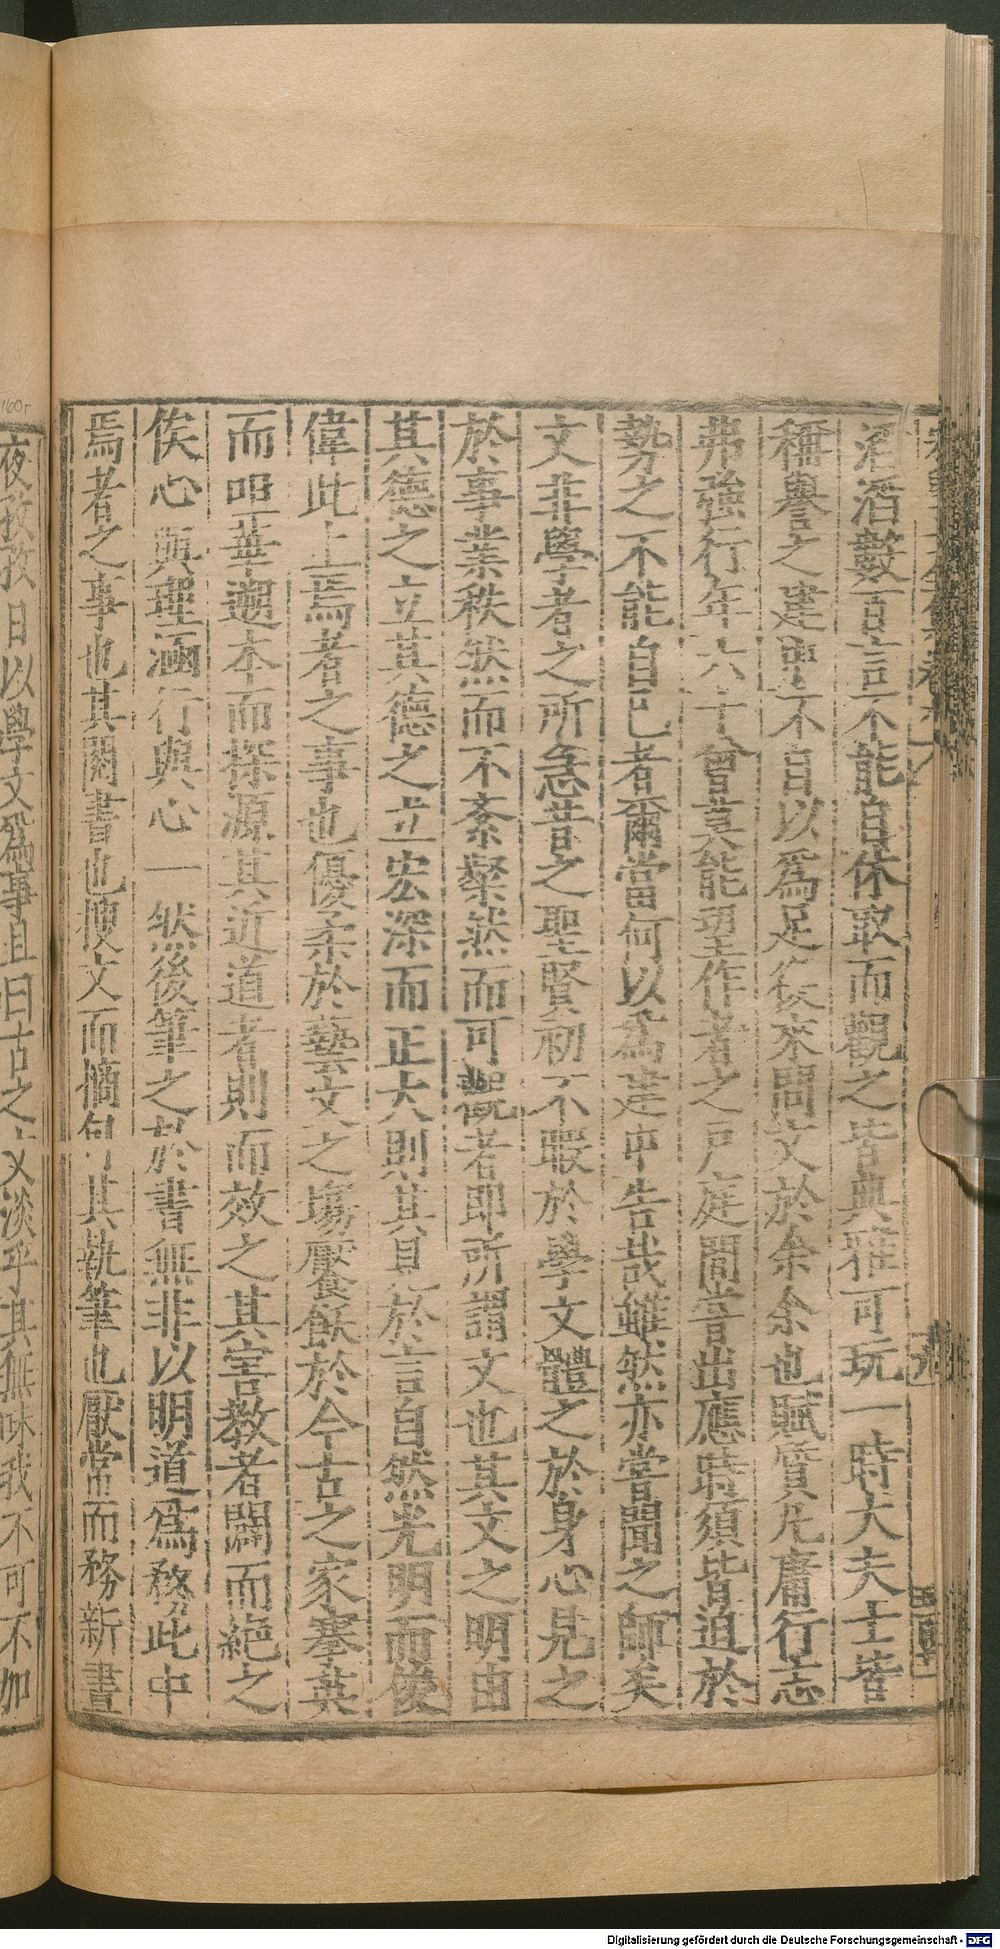 滔滔數百言不能自休取而觀之皆典雅可玩一時大夫士皆
稱譽之建中不自以爲足復來問文於余余也賦質凡庸行志
弗強行年六十曾莫能望作者之戶庭間嘗出應時須皆迫於
勢之不能自已者爾當何以爲建中告哉雖然亦嘗聞之師矣
文非學者之所急昔之聖賢初不暇於學文體之於身心見之
於事業秩然而不紊粲然而可觀者即所謂文也其文之明由
其德之立其德之立宏深而正大則其見於言自然光明而俊
偉此上焉者之事也優柔於藝文之場饜飫於今古之家搴英
而咀華遡本而探源其近道者則而效之其害教者闢而絕之
俟心與理涵行與心一然後筆之於書無非以明道爲務此中
焉者之事也其閱書也搜文而摘句其執筆也厭常而務新晝
夜孜孜日以學文爲事且曰古之文淡乎其無味我不可不加
160r
Digitalisierung gefördert durch die Deutsche Forschungsgemeinschaft - DFG